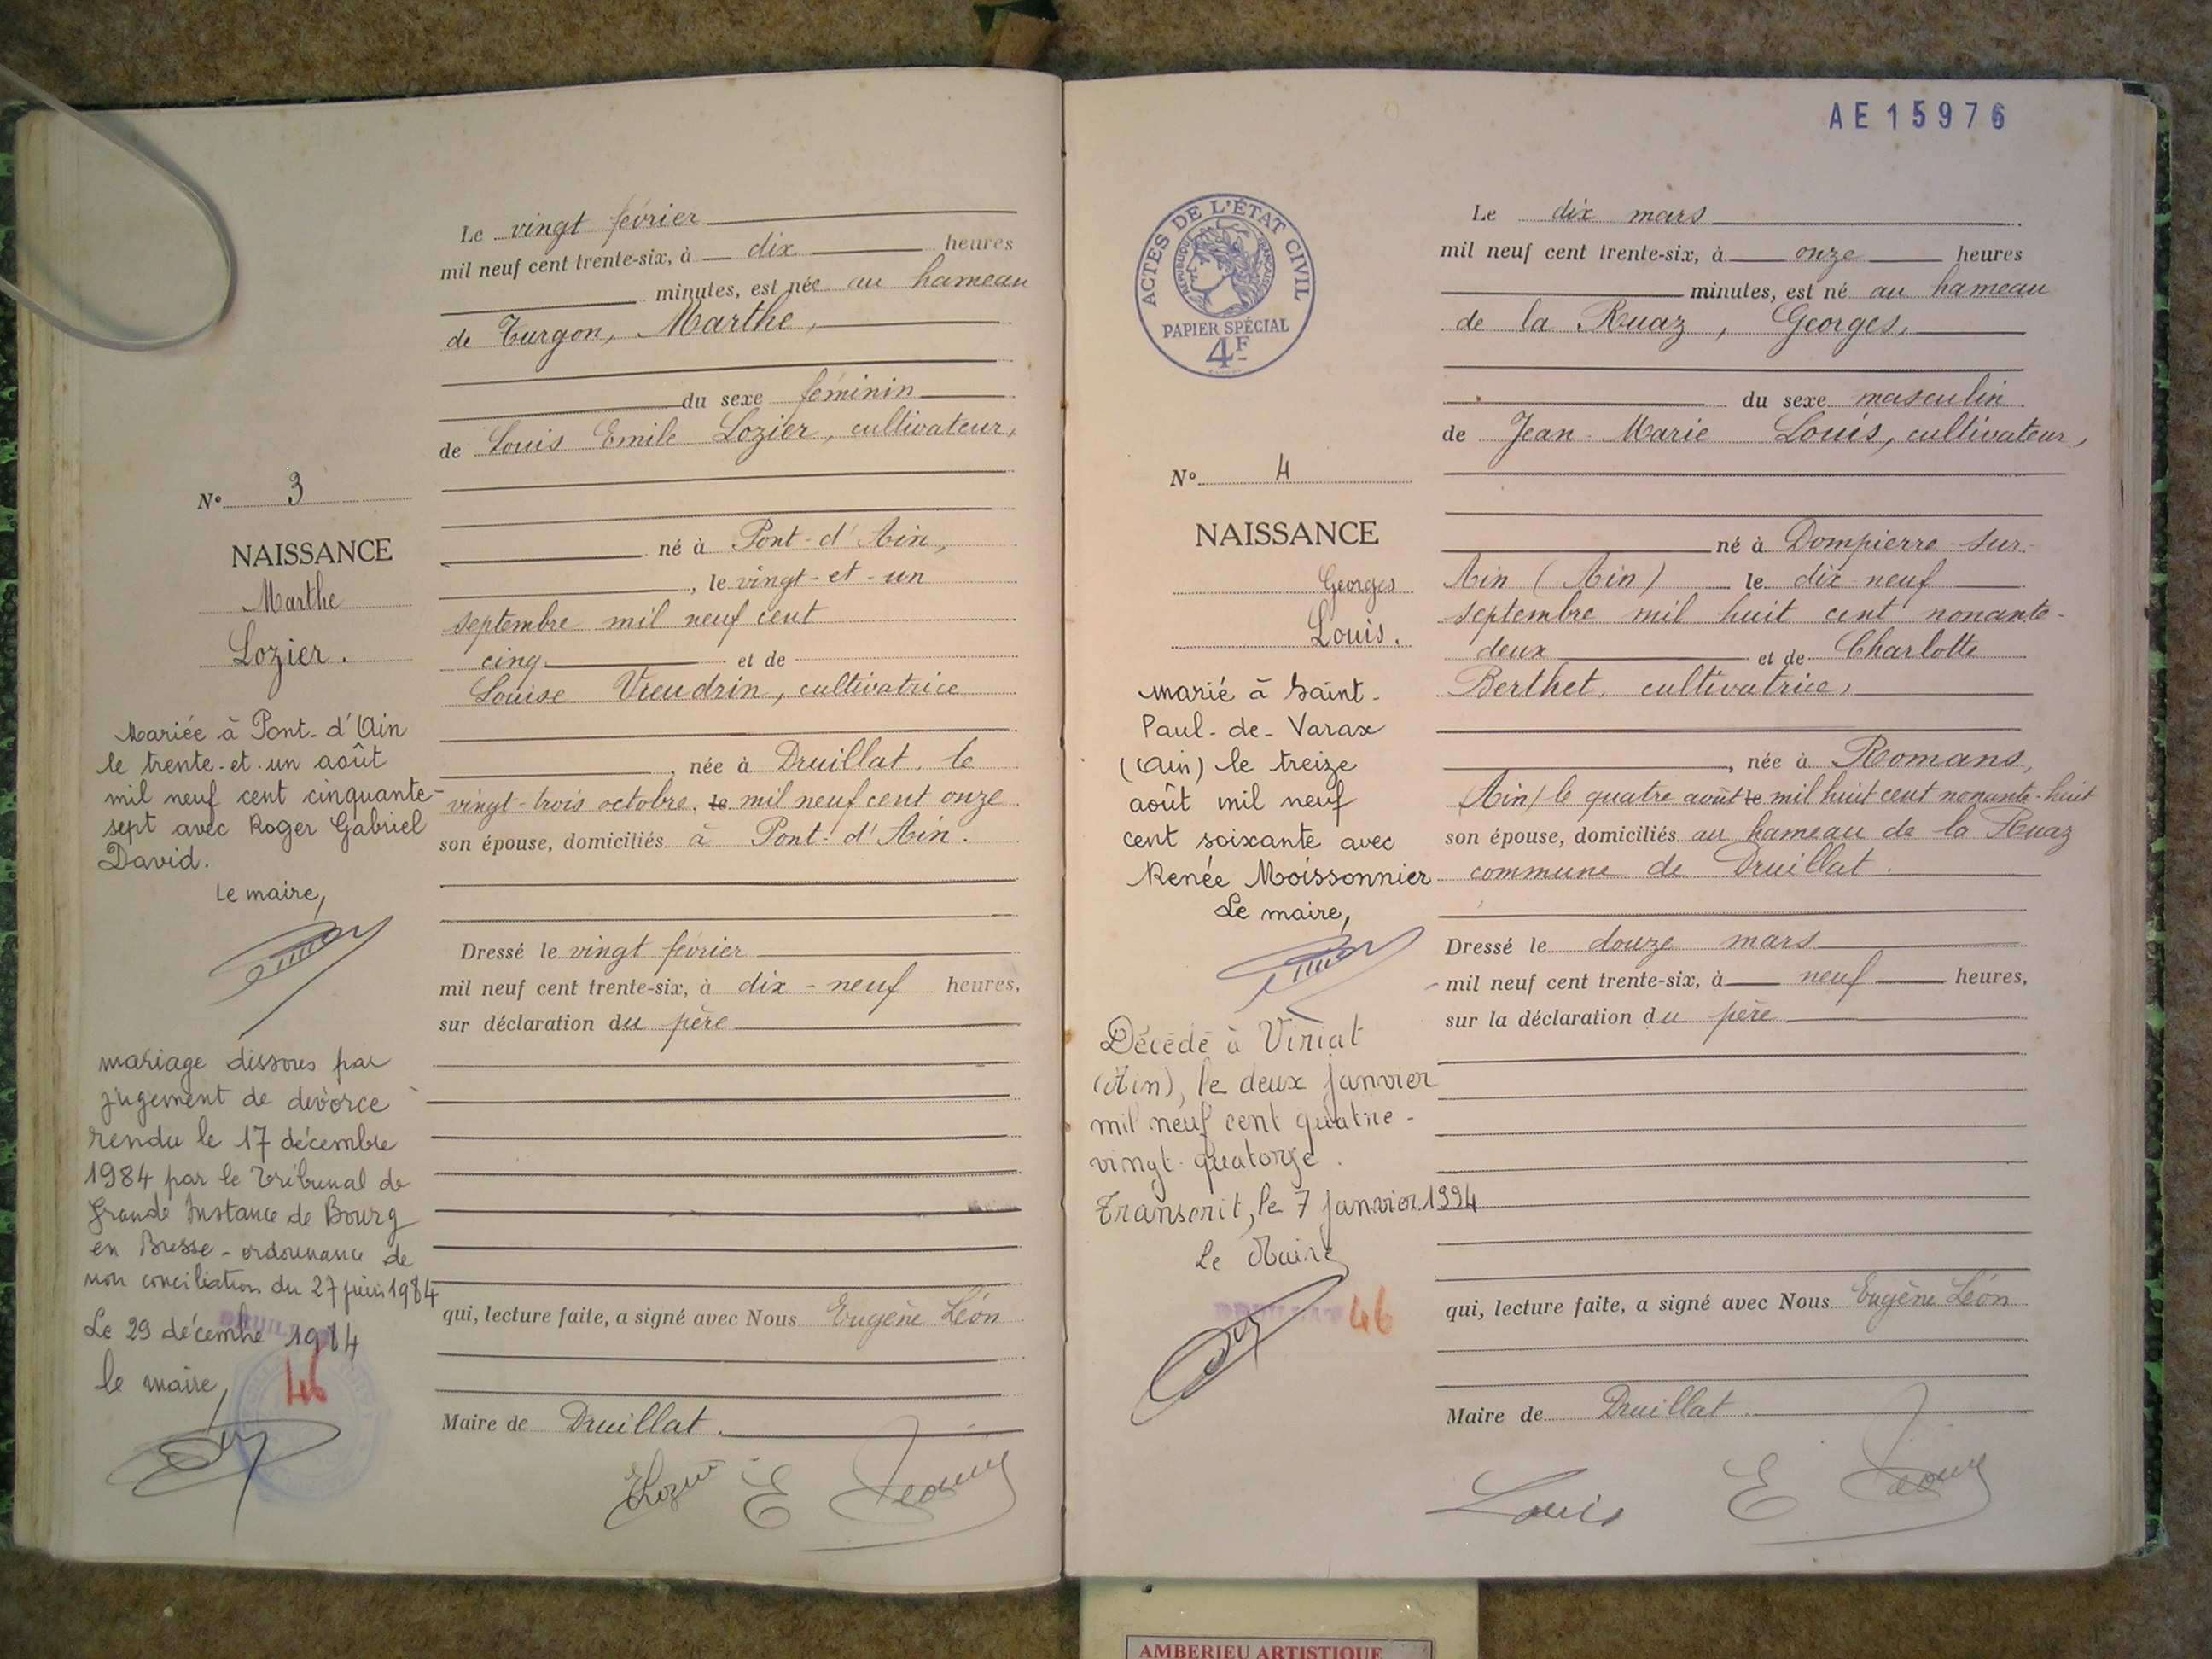 Le vingt février
mil neuf cent trente-six, à dix heures
minutes, est née au hameau
de Turgon, Marthe,
du sexe féminin
de Louis Emile Lozier, cultivateur,
né à Pont-d'Ain,
, le vingt-et-un
septembre mil neuf cent
cinq et de
Louise Vieudrin, cultivatrice
, née à Druillat, le
vingt-trois octobre, le mil neuf cent onze
son épouse, domiciliés à Pont-d'Ain.
Dressé le vingt février
mil neuf cent trente-six, à dix-neuf heures,
sur déclaration du père
qui, lecture faite, a signé avec Nous Eugène Léon
Maire de Druillat.
N° 3
NAISSANCE
Marthe
Lozier.
Mariée à Pont-d'Ain
le trente-et-un août
mil neuf cent cinquante-
sept avec Roger Gabriel
David.
Le maire,
mariage dissous par
jugement de divorce
rendu le 17 décembre
1984 par le Tribunal de
Grande Instance de Bourg
en Bresse - ordonnance de
non conciliation du 27 juin 1984
Le 29 décembre 1984
le maire,
DRUILLAT
46
AE15976
ACTES DE L'ÉTAT CIVIL
RÉPUBLIQUE FRANÇAISE
PAPIER SPÉCIAL
4F
Le dix mars
mil neuf cent trente-six, à onze heures
minutes, est né au hameau
de la Ruaz, Georges,
du sexe masculin
de Jean-Marie Louis, cultivateur,
né à Dompierre-sur-
Ain (Ain) le dix-neuf
septembre mil huit cent nonante-
deux et de Charlotte
Berthet, cultivatrice,
, née à Romans,
(Ain) le quatre août le mil huit cent nonante-huit
son épouse, domiciliés au hameau de la Ruaz
commune de Druillat.
Dressé le douze mars
mil neuf cent trente-six, à neuf heures,
sur la déclaration du père
qui, lecture faite, a signé avec Nous Eugène Léon
Maire de Druillat.
Louis
N° 4
NAISSANCE
Georges
Louis.
marié à Saint-
Paul-de-Varax
(Ain) le treize
août mil neuf
cent soixante avec
Renée Moissonnier
Le maire,
Décédé à Viriat
(Ain), le deux janvier
mil neuf cent quatre-
vingt-quatorze.
Transcrit, le 7 janvier 1994
Le Maire
DRUILLAT
46
AMBERIEU ARTISTIQUE